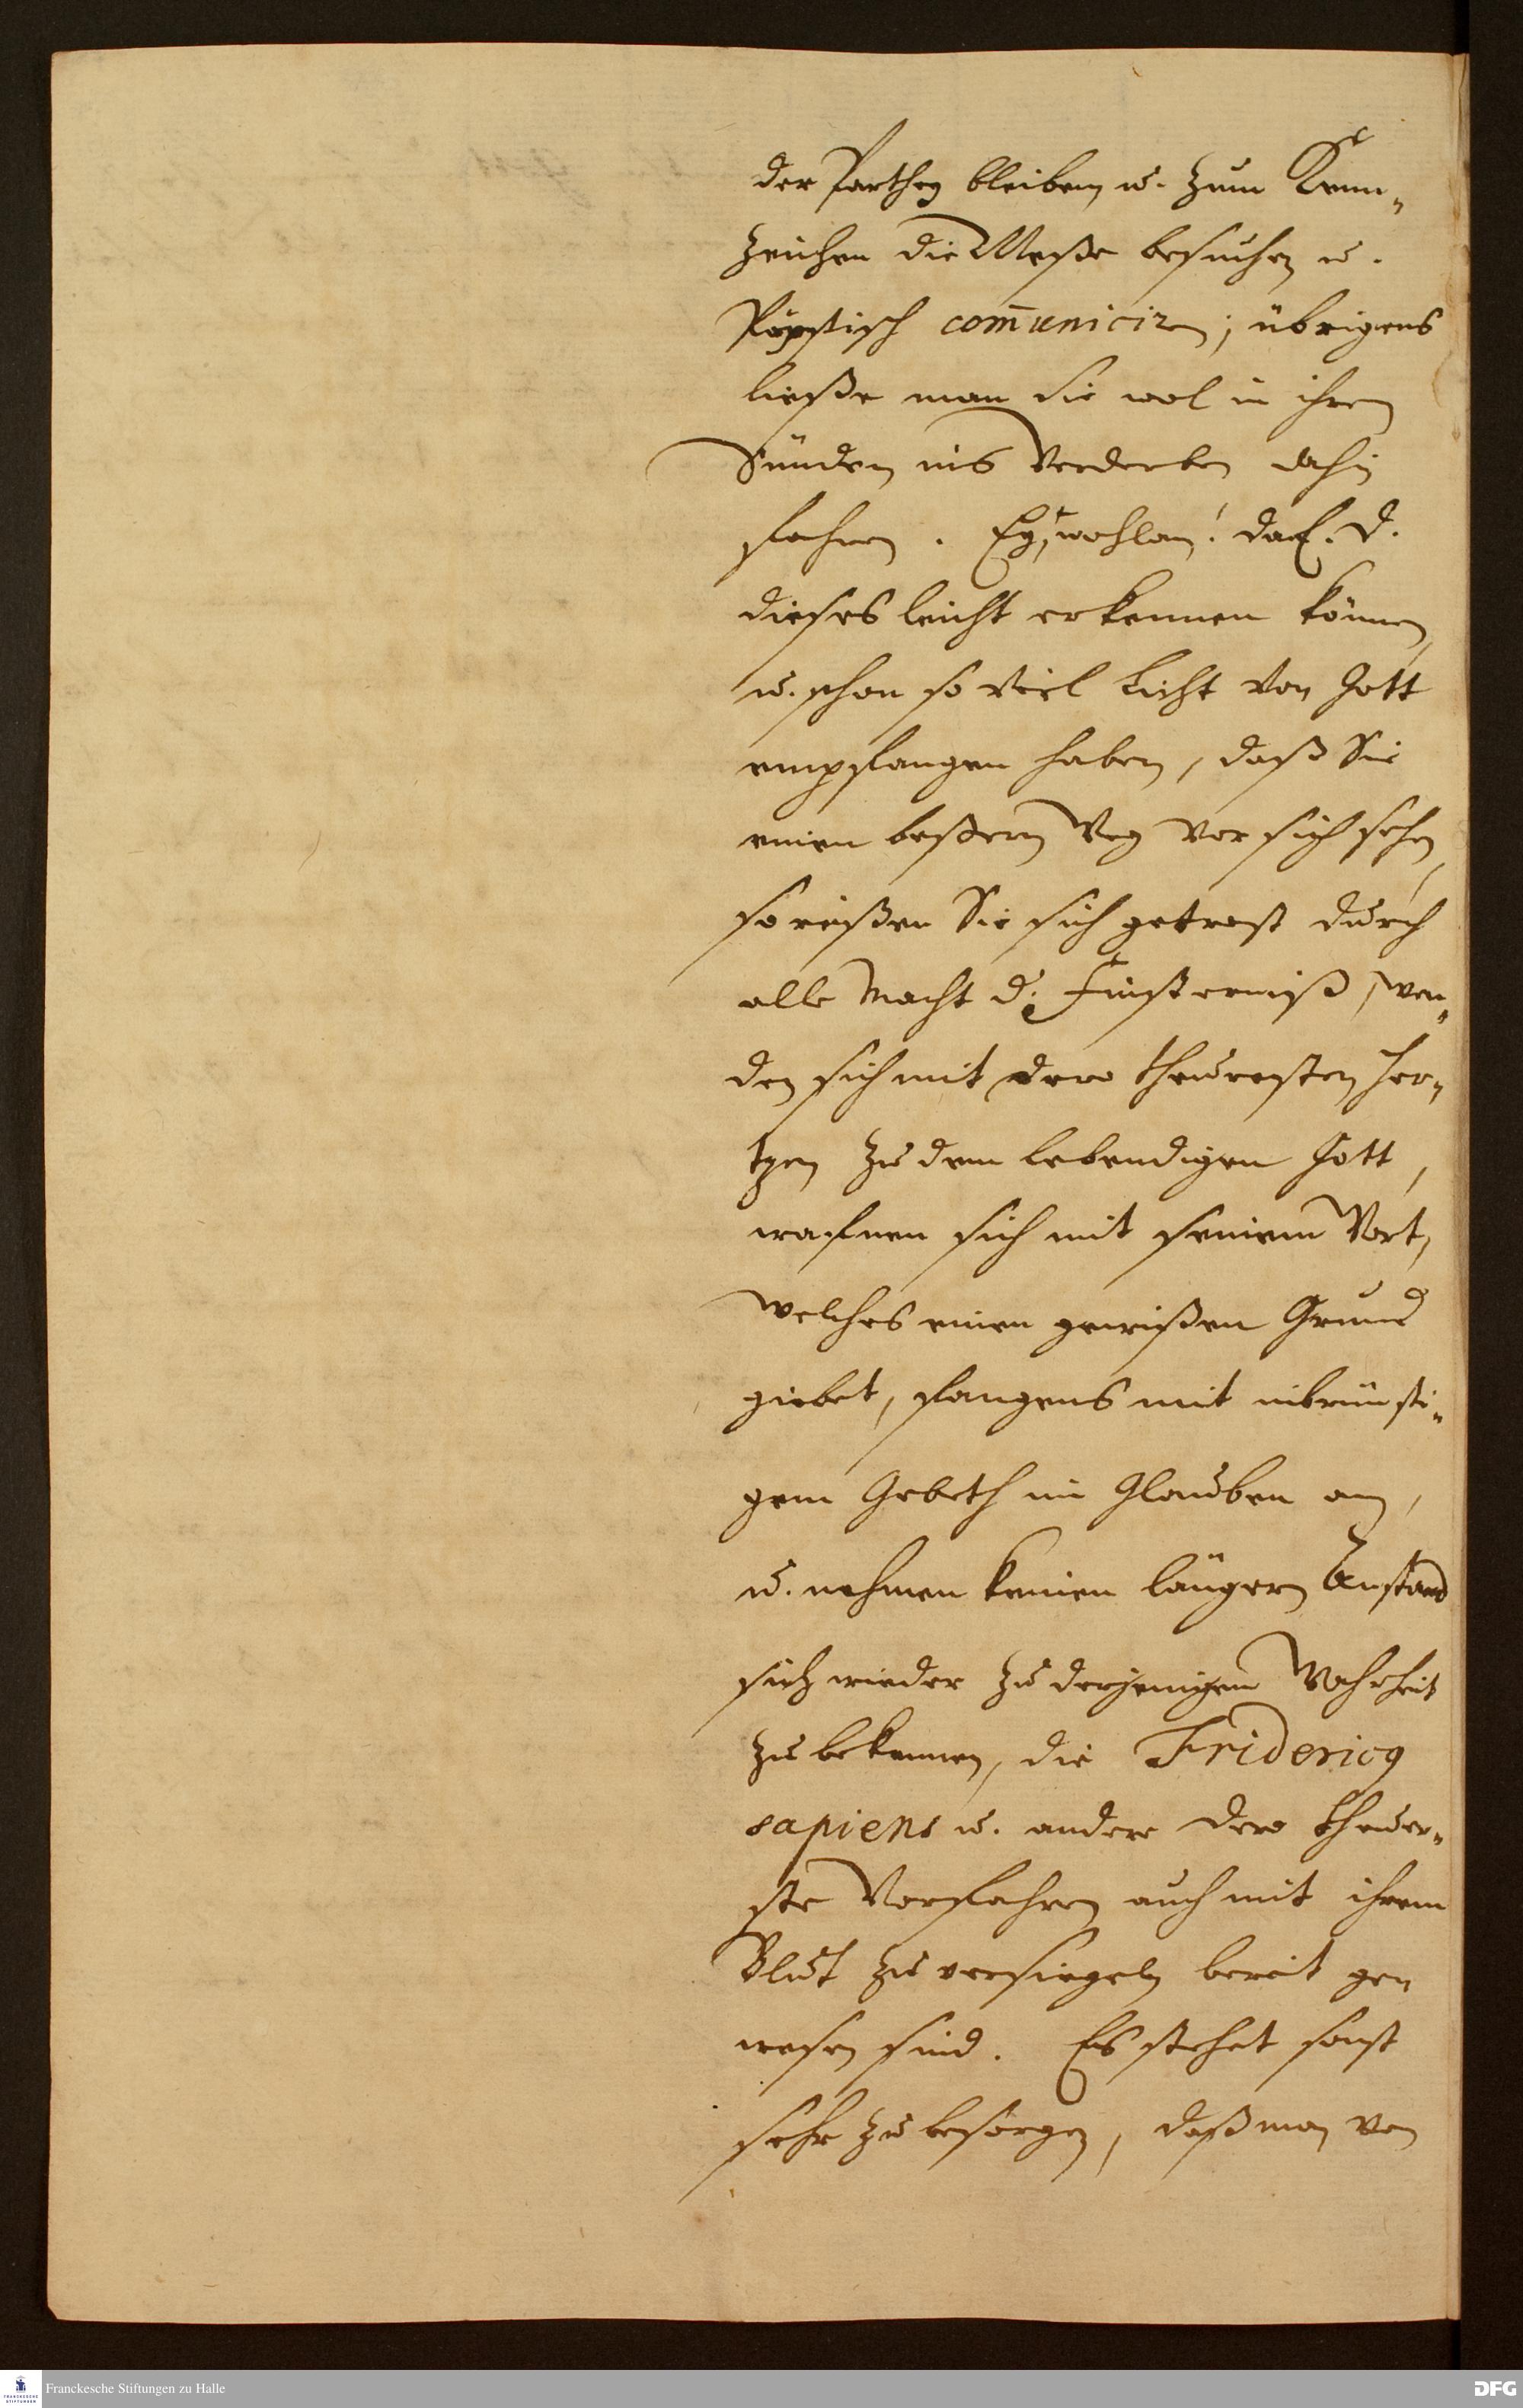 der Parthey bleiben u. zum Kenn-
zeichen die Meße besuchen u.
Päpstisch com̅unicirn; übrigens
ließe man sie wol in ihren
Sünden ins Verderben dahin
fahren. Ey, wohlan! da E. D.
dieses leicht erkennen können,
u. schon so viel Licht von Gott
empfangen haben, daß Sie
einen beßern Weg vor sich sehen,
so reißen Sie sich getrost durch
alle Macht d. Finsterniß, wen-
den sich mit dero theuresten Her-
tzen zu dem lebendigen Gott,
wafnen sich mit seinem Wort,
welches einen gewißen Grund
giebet, fangens mit inbrünsti-
gem Gebeth im Glauben an,
u. nehmen keinen längern Anstand
sich wieder zu derjenigen Wahrheit
zu bekennen, die Fridericus
sapiens u. andere dero theuer-
ste Vorfahren auch mit ihrem
Blut zu versiegeln bereit ge-
wesen sind. Es stehet sonst
sehr zu besorgen, daß man von
Franckesche Stiftungen zu Halle
FRANCKESCHE STIFTUNGEN
DFG